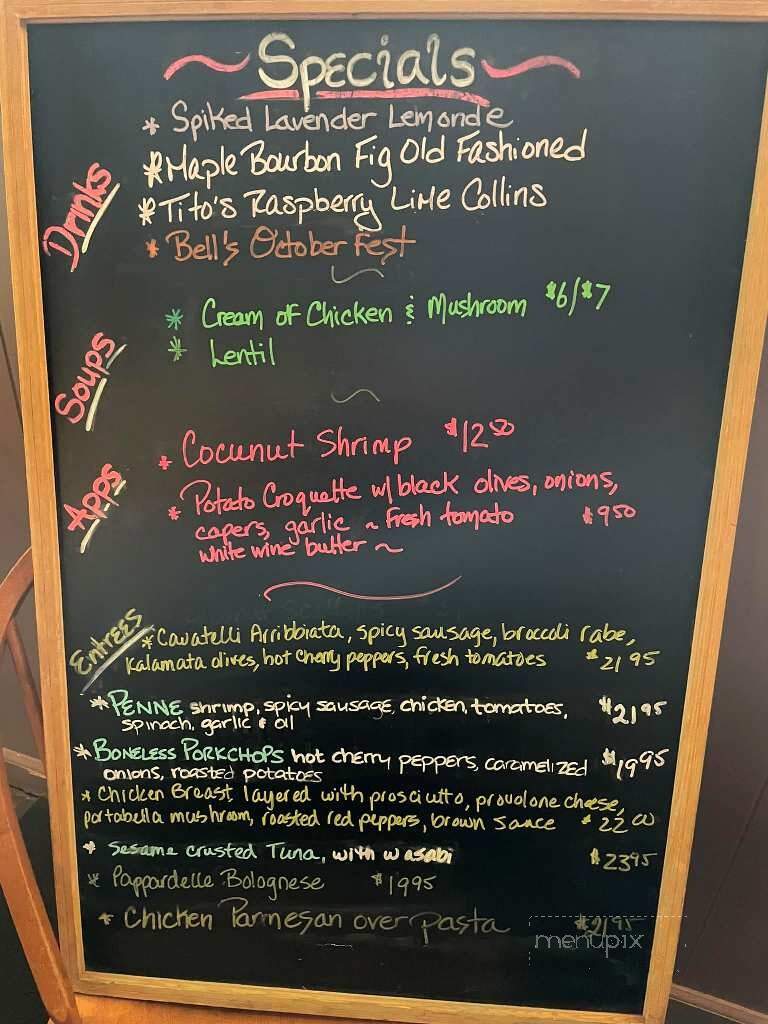 Specials
Drinks
* Spiked Lavender Lemonde
* Maple Bourbon Fig Old Fashioned
* Tito's Raspberry Lime Collins
* Bell's October Fest
Soups
* Cream of Chicken & Mushroom $6/$7
* Lentil
Apps
* Cocunut Shrimp $12 50
* Potato Croquette w/ black olives, onions,
capers, garlic ~ fresh tomato $9 50
white wine butter ~
Entrees
* Cavatelli Arribbiata, spicy sausage, broccoli rabe,
Kalamata olives, hot cherry peppers, fresh tomatoes $21 95
* PENNE shrimp, spicy sausage, chicken, tomatoes, $21 95
spinach, garlic & oil
* BONELESS PORKCHOPS hot cherry peppers, caramelized $19 95
onions, roasted potatoes
* Chicken Breast, layered with prosciutto, provolone cheese,
portabella mushroom, roasted red peppers, brown sauce $22 00
* Sesame crusted Tuna, with wasabi $23 95
* Pappardelle Bolognese $19 95
* Chicken Parmesan over pasta $21 95
menupix